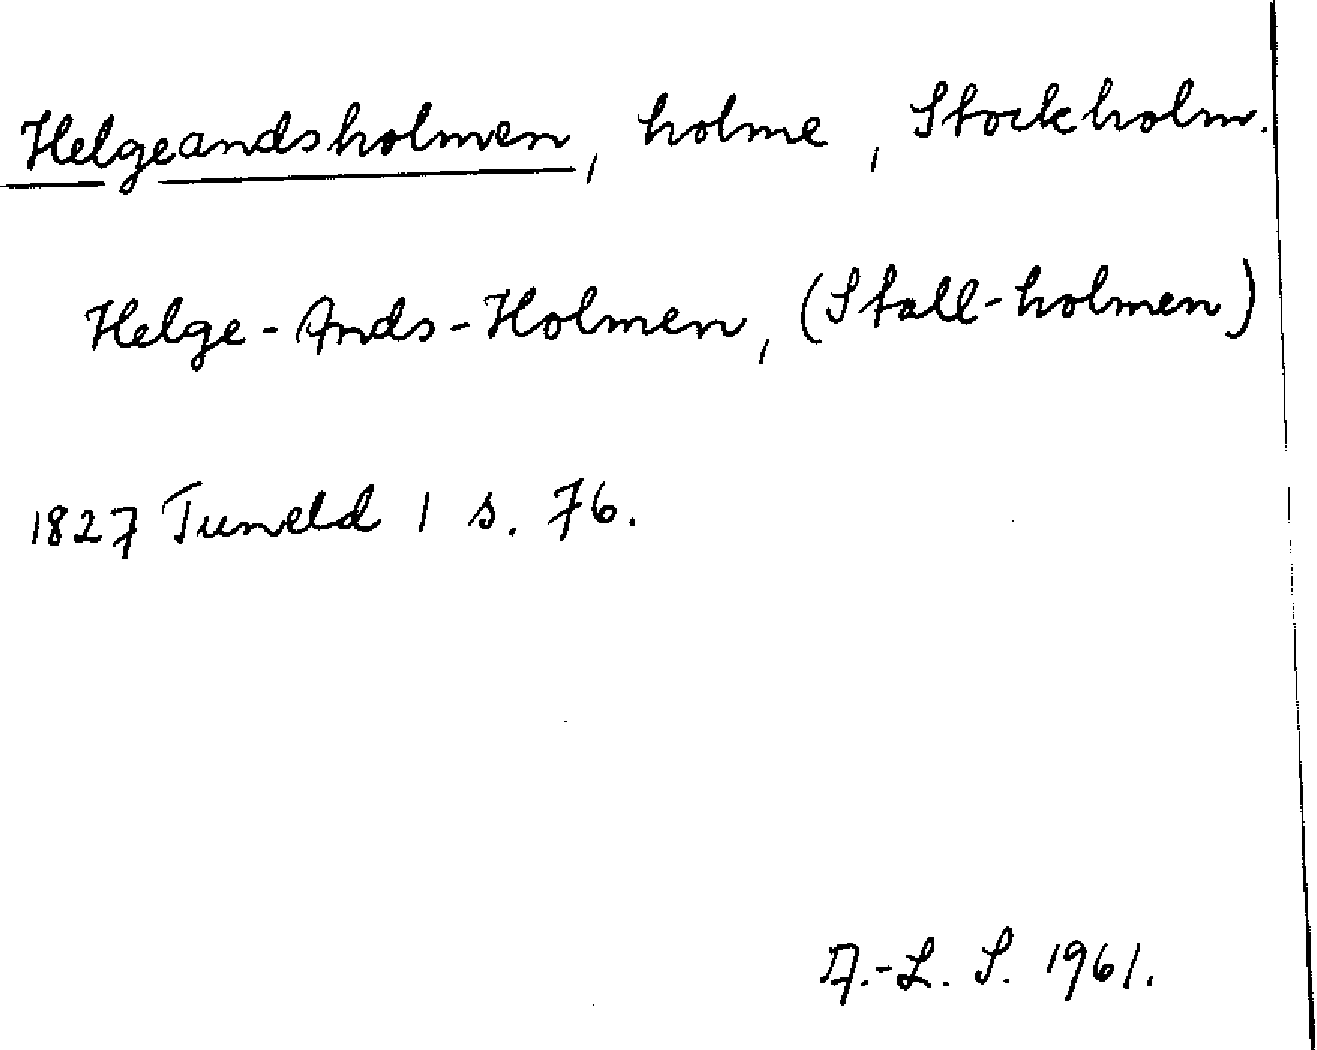 Helgeandsholmen, holme, Stockholm.
Helge-Ands-Holmen, (Stall-holmen)
1827 Tuneld 1 s. 76.
A.-L. S. 1961.